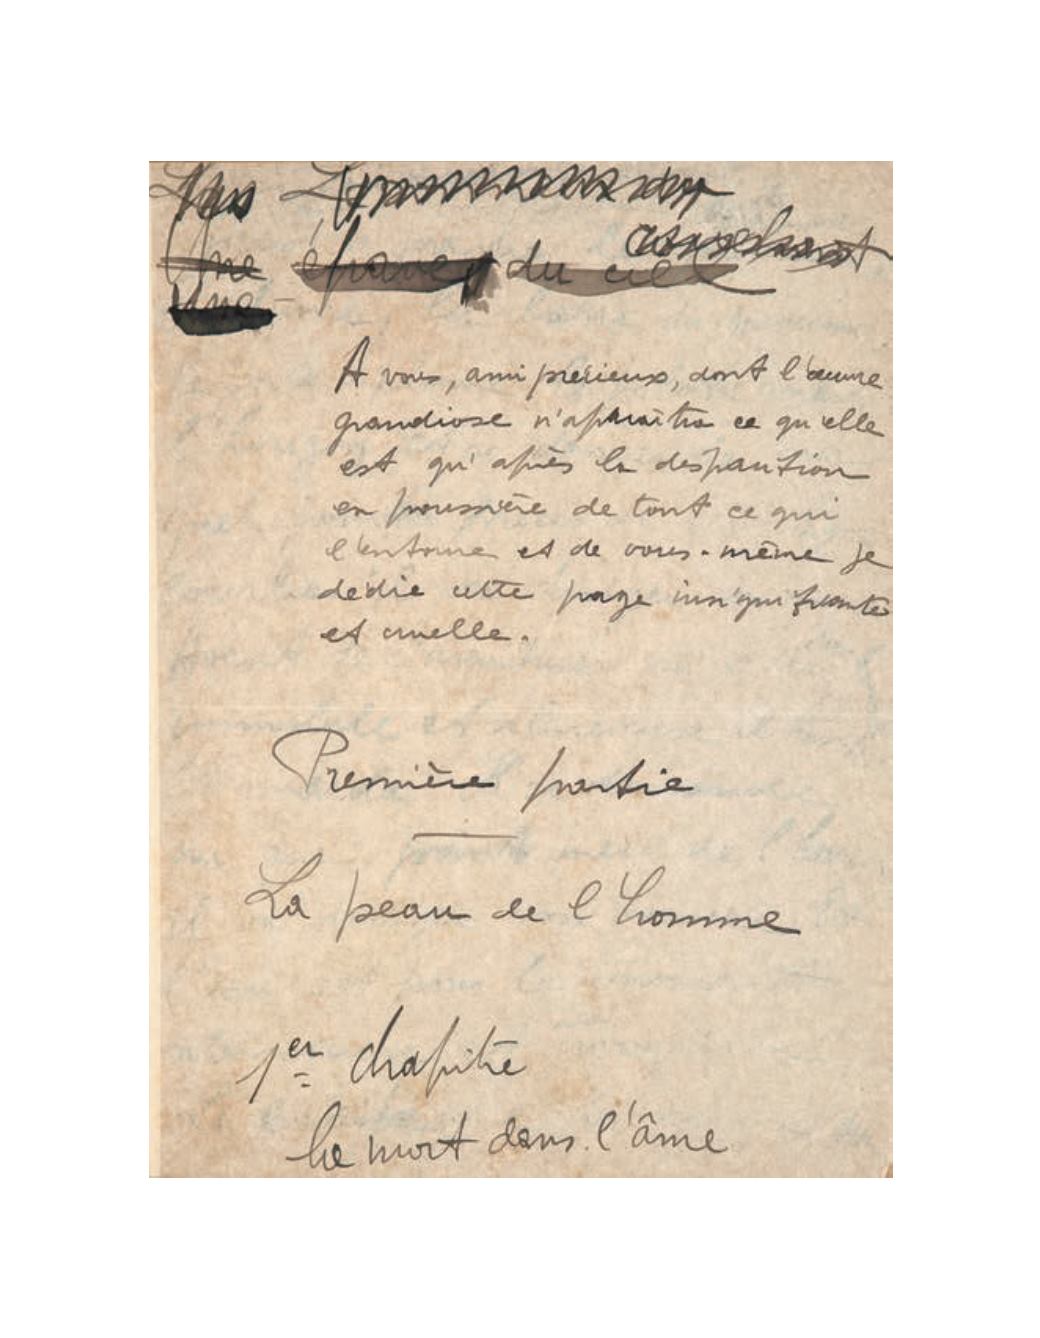 Une épave du ciel
Une
A vous, ami précieux, dont l'œuvre
grandiose n'apparaîtra ce qu'elle
est qu'après la disparition
en poussière de tout ce qui
l'entoure et de vous-même je
dédie cette page insignifiante
et cruelle.
Première partie
La peau de l'homme
1er chapitre
La mort dans l'âme